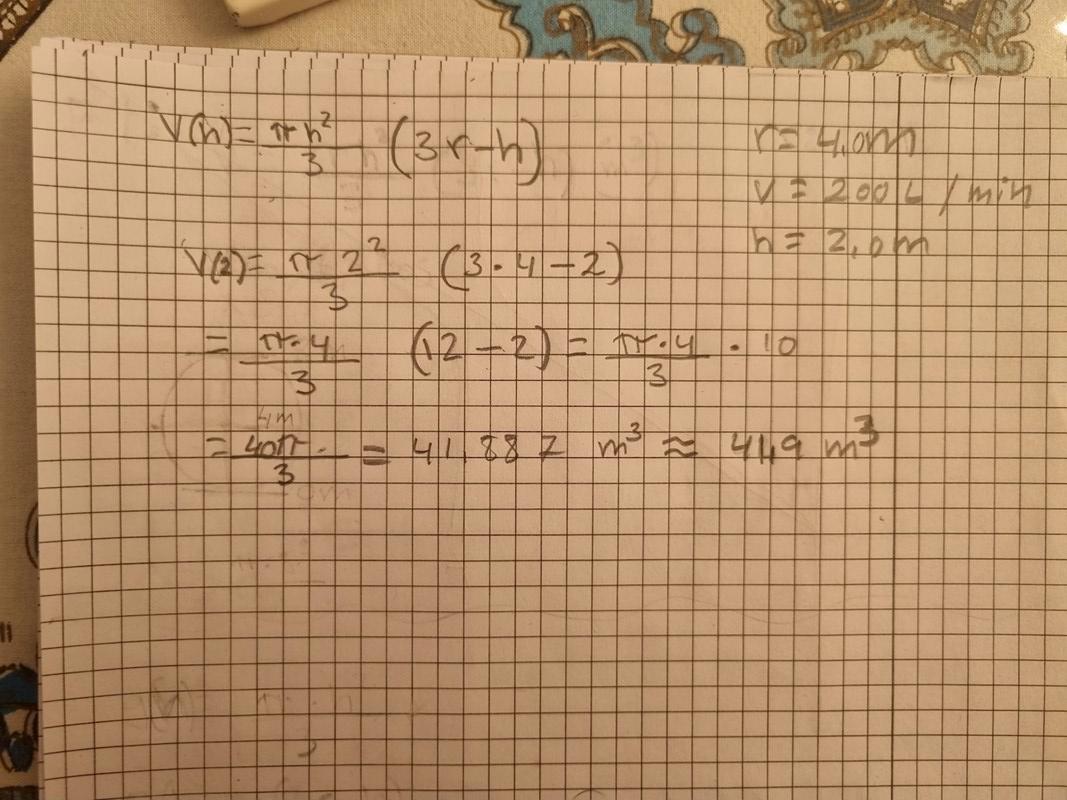 V(h) = πh²/3 (3r-h)
r = 4,0m
v = 200 L / min
h = 2,0m
V(2) = π 2²/3 (3·4-2)
= π·4/3 (12-2) = π·4/3 · 10
= 40π/3 = 41,887 m³ ≈ 41,9 m³
4m